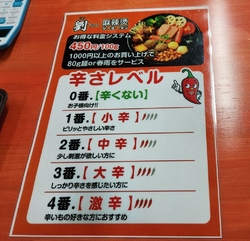 劉 麻辣湯
お得な料金システム
450円/100g
1000円以上のお買い上げで
80g麺or春雨をサービス
辛さレベル
0番.【辛くない】
お子様向け!!
1番.【小 辛】
ピリッとやさしい辛さ
2番.【中 辛】
少し刺激が欲しい方に
3番.【大 辛】
しっかり辛さを感じたい方に
4番.【激 辛】
辛いもの好きな方におすすめ